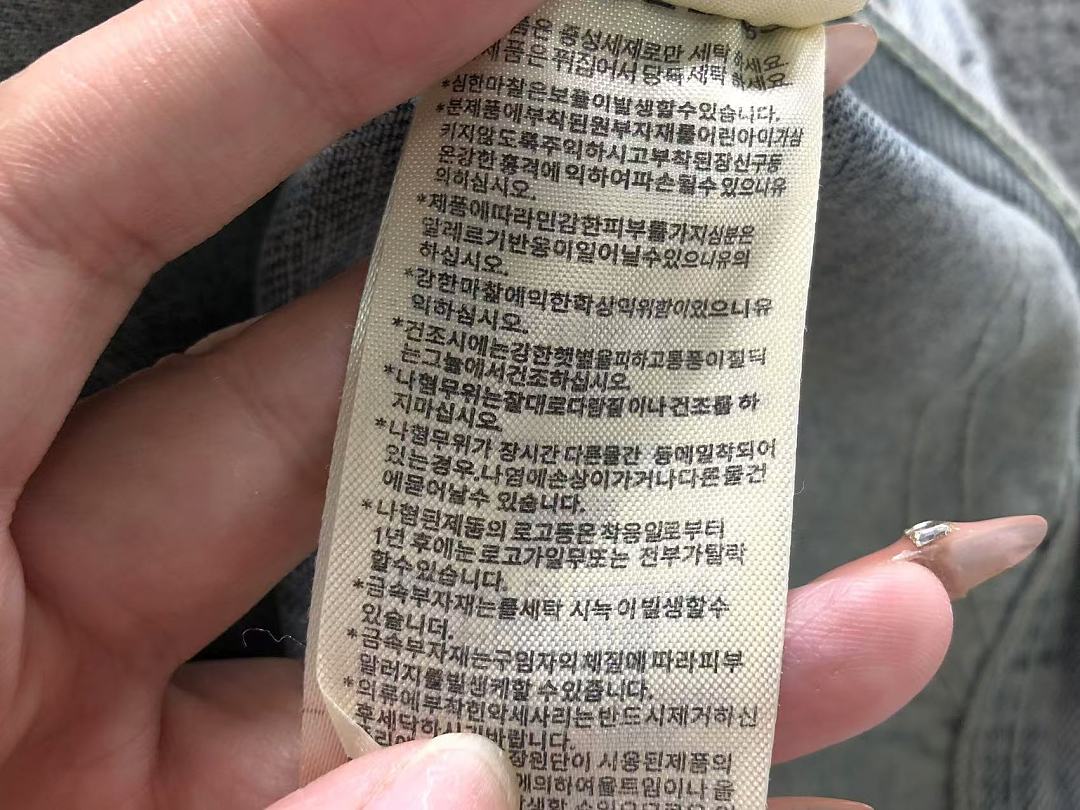 품은 중성세제로만 세탁하세요.
제품은 뒤집어서 단독세탁하세요.
*심한마찰은보풀이발생할수있습니다.
*분제품에부착된원부자재를어린아이가삼
키지않도록주의하시고부착된장신구등
은강한 충격에 의하여파손될수있으니유
의하십시오.
*제품에따라민감한피부를가지심분은
알레르기반응이일어날수있으니유의
하십시오.
*강한마찰에의한학상의위함이있으니유
의하심시오.
*건조시에는강한햇볕을피하고통풍이잘되
는그늘에서건조하십시오.
*나혐무위는잘대로다람질이나건조를 하
지마십시오.
*나혐무위가 장시간 다른물간 등에일착되어
있는경우.나염에손상이가거나다른물건
에묻어날수 있습니다.
*나혐된제품의 로고등은착용일로부터
1년 후에는로고가일무또는 전부가탈락
할수있습니다.
*금속부자재는물세탁 시녹이발생할수
있습니더.
*금속부자재는구임자의체질에따라피부
알러지를발생케할수있줍니다.
*의류에부착힌악세사리는반드시제거하신
후세탁하시기바랍니다.
장원단이 시용된제품의
에의하여올트임이나 올